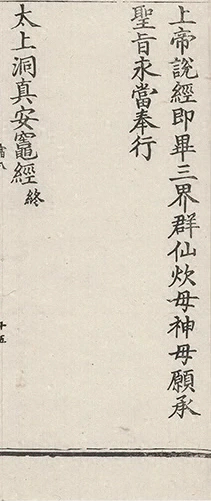 上帝說經即畢三界群仙炊母神母願承
聖旨永當奉行
太上洞真安竈經 終
十五